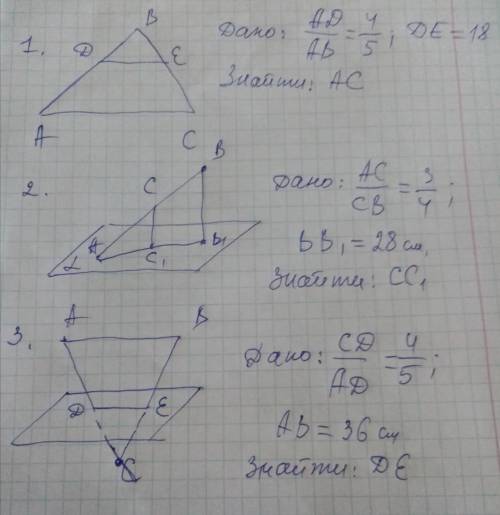 1.
B
D
E
A
C
Дано: AD/AB = 4/5; DE = 18
Знайти: AC
2.
B
C
A
α
C₁
B₁
Дано: AC/CB = 3/4;
BB₁ = 28 см,
Знайти: CC₁
3.
A
B
D
E
C
Дано: CD/AD = 4/5;
AB = 36 см
Знайти: DE